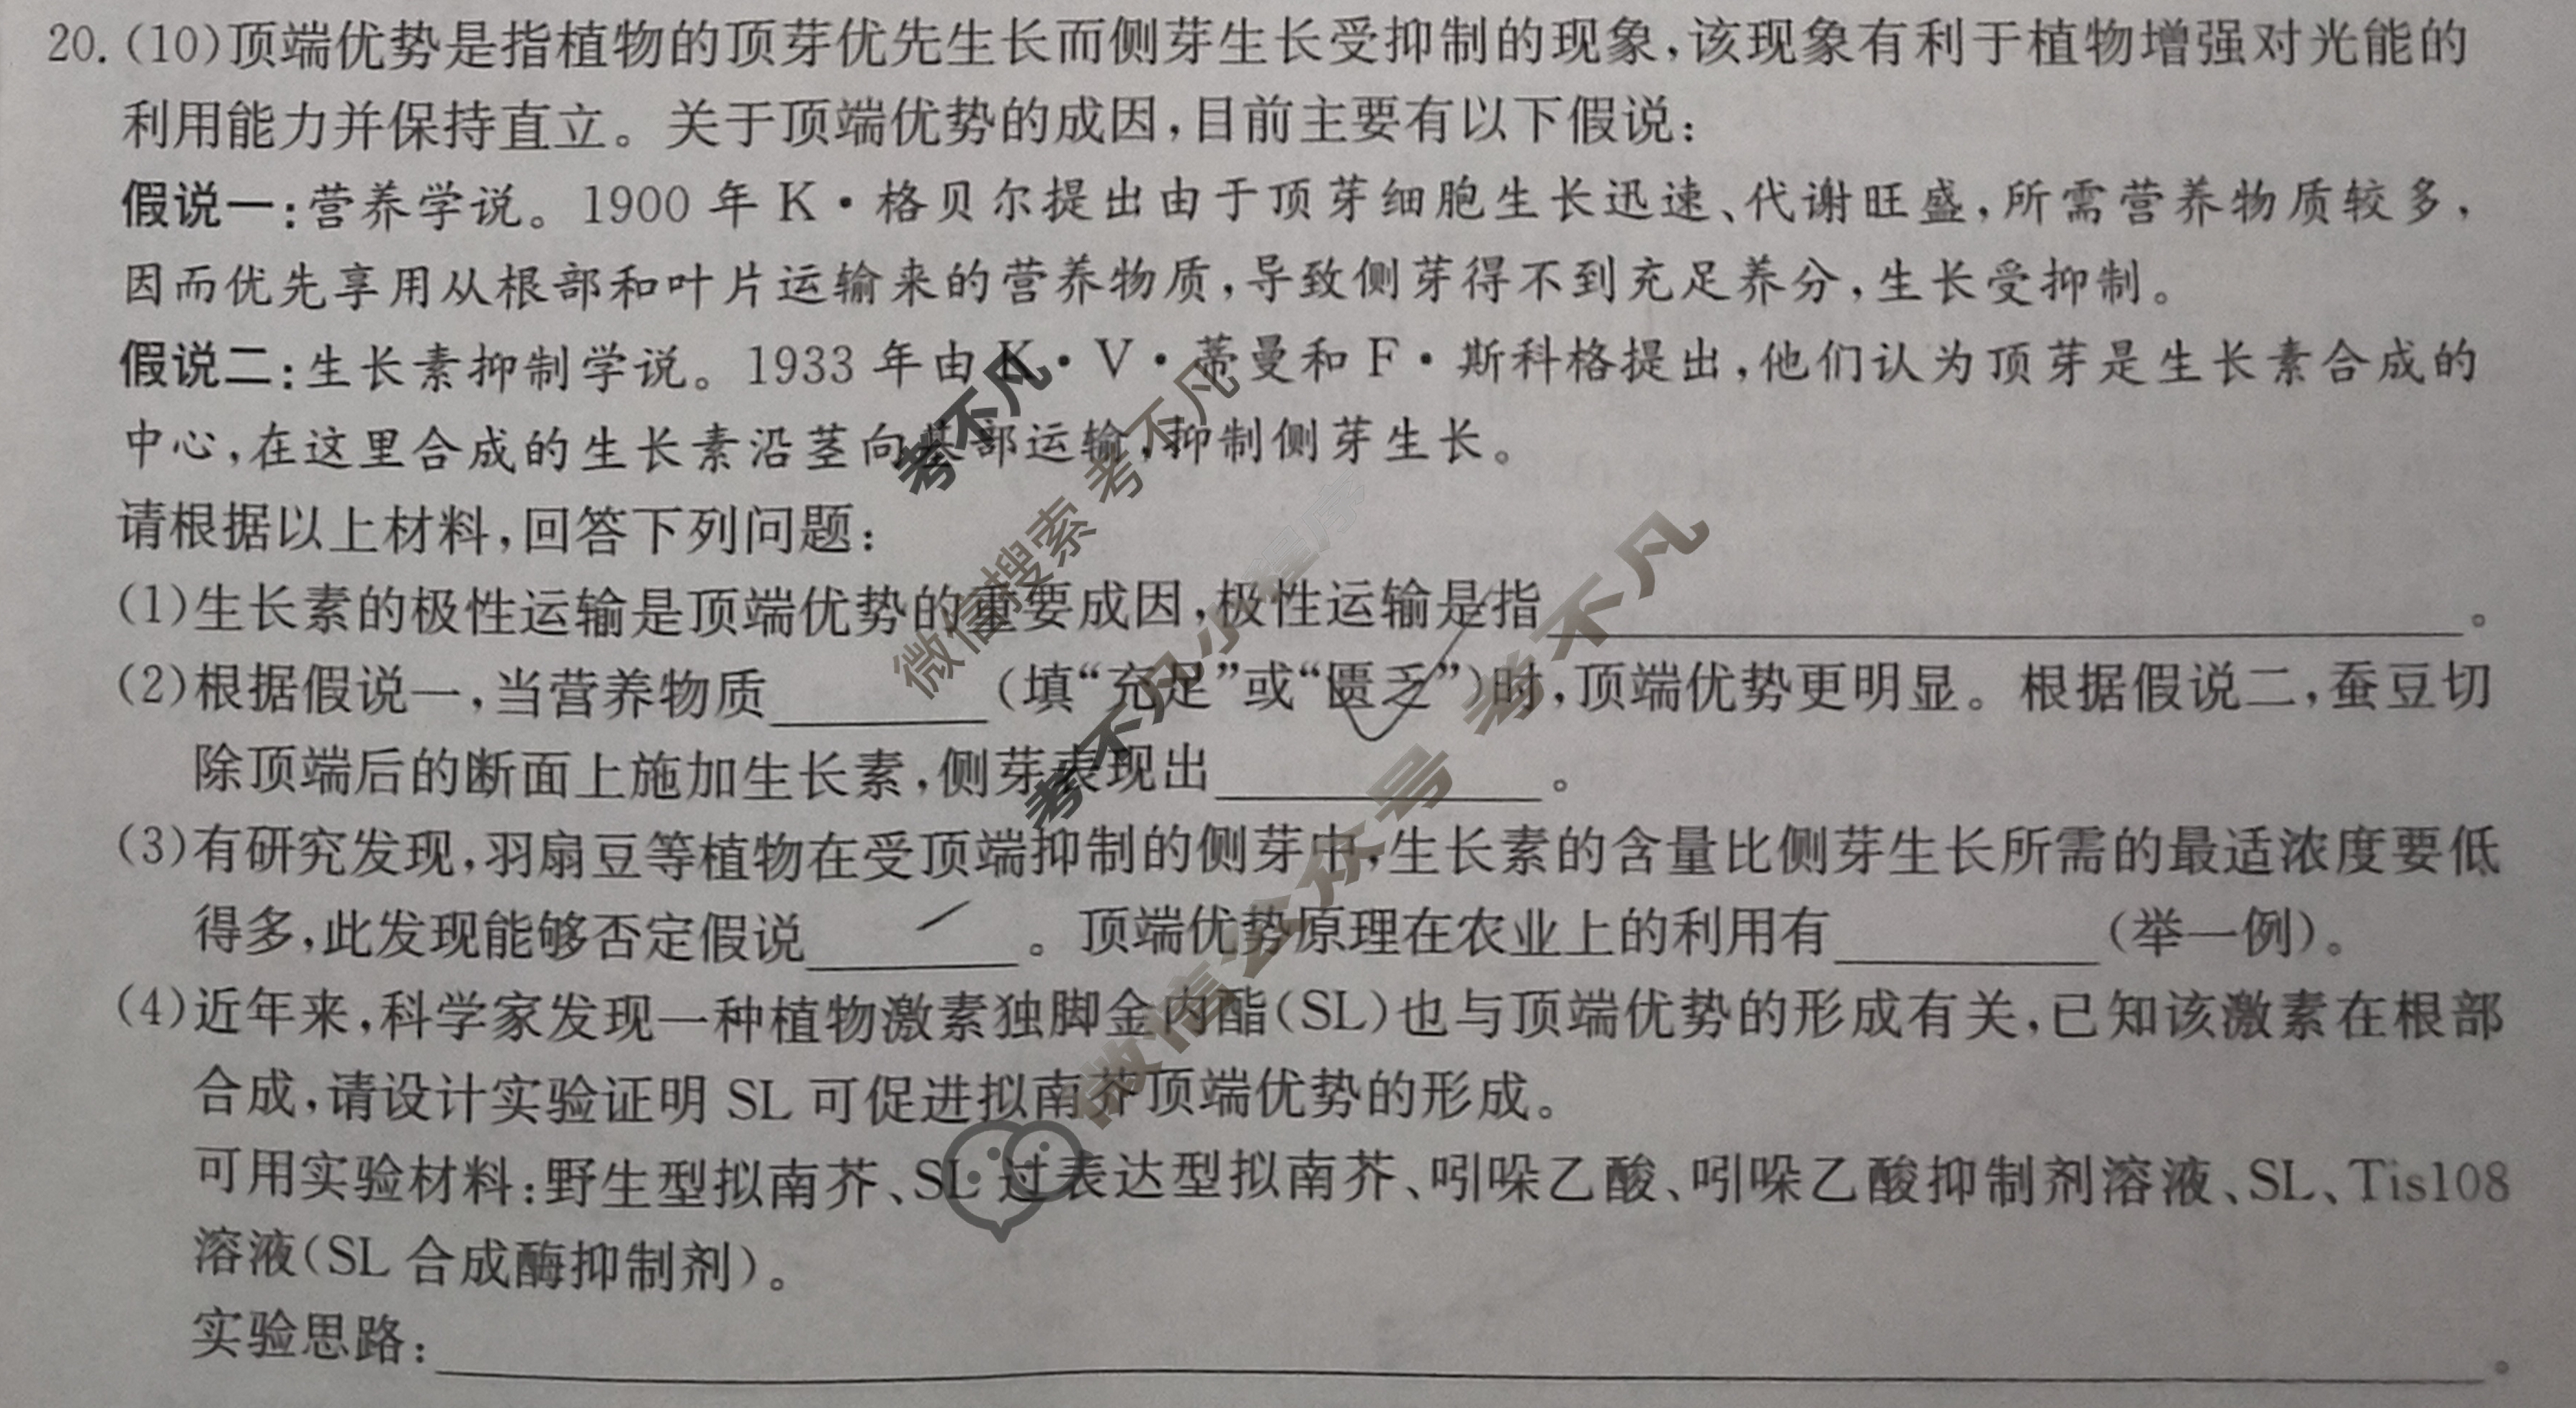 20.(10)顶端优势是指植物的顶芽优先生长而侧芽生长受抑制的现象,该现象有利于植物增强对光能的
利用能力并保持直立。关于顶端优势的成因,目前主要有以下假说:
假说一:营养学说。1900 年 K·格贝尔提出由于顶芽细胞生长迅速、代谢旺盛,所需营养物质较多,
因而优先享用从根部和叶片运输来的营养物质,导致侧芽得不到充足养分,生长受抑制。
假说二:生长素抑制学说。1933 年由 K·V·蒂曼和 F·斯科格提出,他们认为顶芽是生长素合成的
中心,在这里合成的生长素沿茎向基部运输,抑制侧芽生长。
请根据以上材料,回答下列问题:
(1)生长素的极性运输是顶端优势的重要成因,极性运输是指________。
(2)根据假说一,当营养物质________(填“充足”或“匮乏”)时,顶端优势更明显。根据假说二,蚕豆切
除顶端后的断面上施加生长素,侧芽表现出________。
(3)有研究发现,羽扇豆等植物在受顶端抑制的侧芽中,生长素的含量比侧芽生长所需的最适浓度要低
得多,此发现能够否定假说________。顶端优势原理在农业上的利用有________(举一例)。
(4)近年来,科学家发现一种植物激素独脚金内酯(SL)也与顶端优势的形成有关,已知该激素在根部
合成,请设计实验证明 SL 可促进拟南芥顶端优势的形成。
可用实验材料:野生型拟南芥、SL 过表达型拟南芥、吲哚乙酸、吲哚乙酸抑制剂溶液、SL、Tis108
溶液(SL 合成酶抑制剂)。
实验思路:________。
考不凡
微信搜索 考不凡
考不凡小程序
微信公众号 考不凡